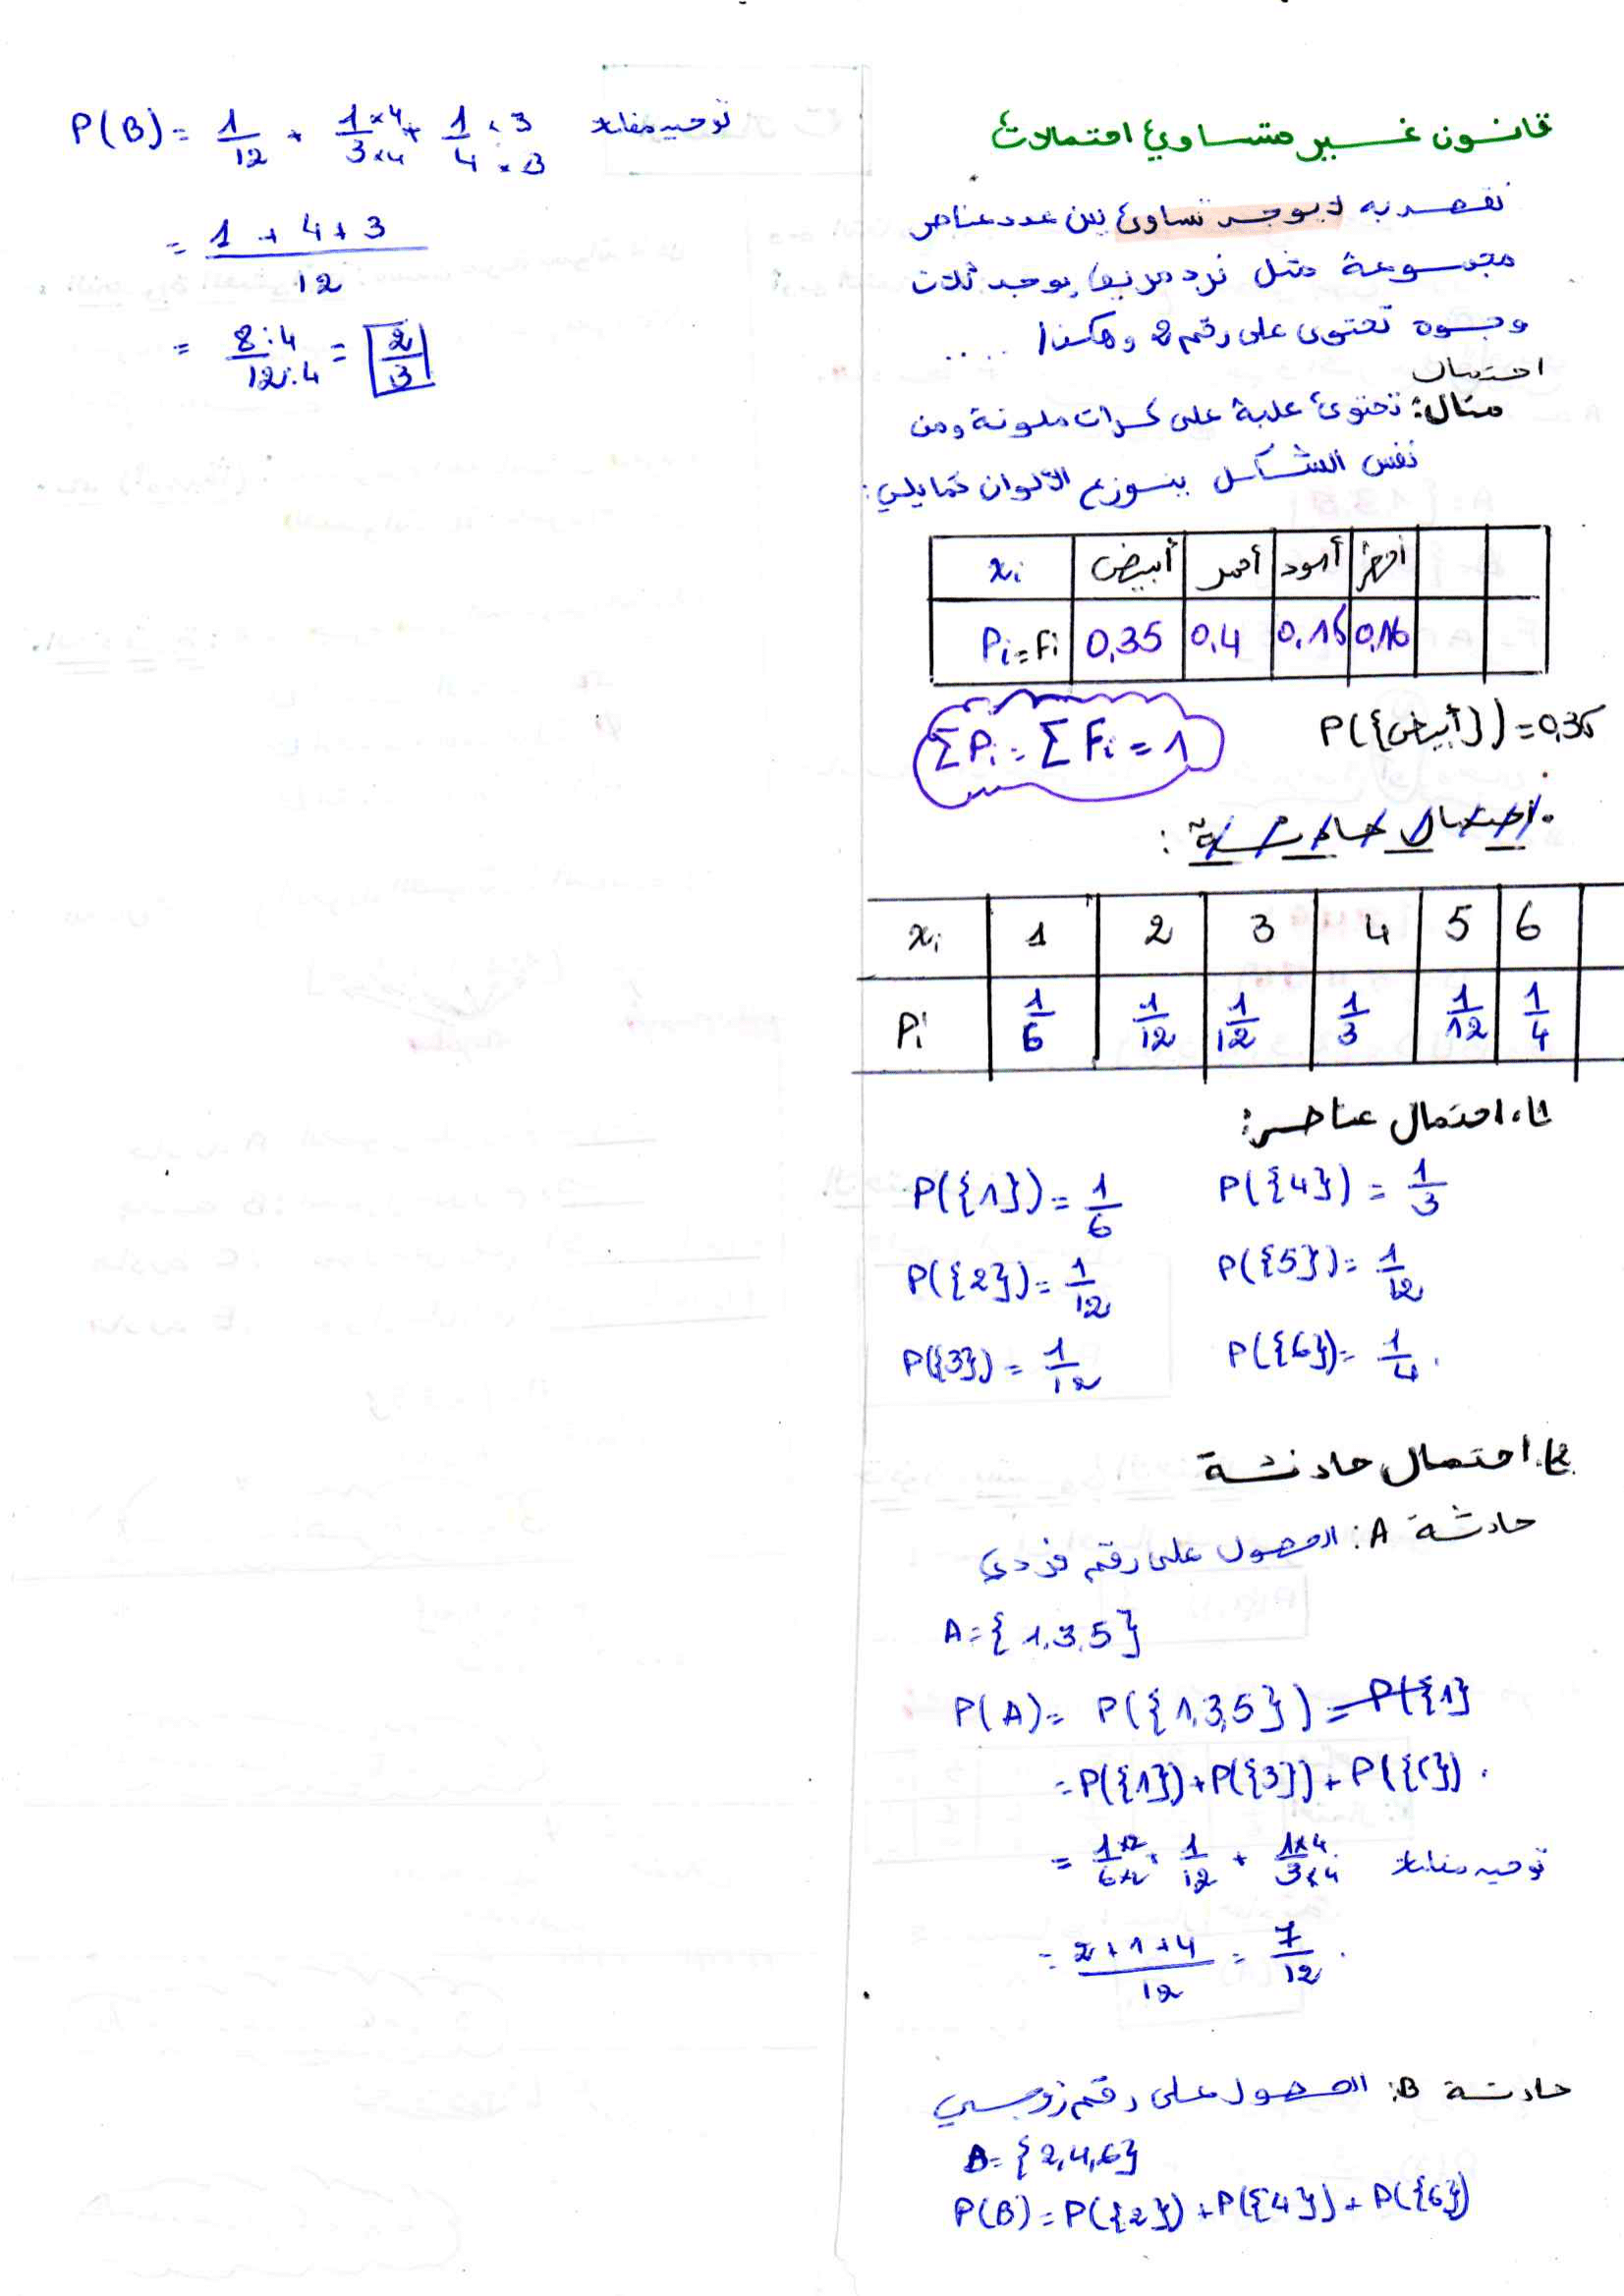 قانون غير متساوي احتمالات
نقصد به لا يوجد تساوي بين عدد عناصر
مجموعة مثل نرد مربع يوجد ثلاث
وجوه تحتوى على رقم 2 وهكذا .....
احتمال
مثال: تحتوي علبة على كرات ملونة ومن
نفس الشكل يتوزع الألوان كمايلي:
xi أبيض أحمر أسود أخضر
Pi=Fi 0,35 0,4 0,15 0,16
ΣPi = ΣFi = 1
P({أبيض}) = 0,35
احتمال حادثة:
xi 1 2 3 4 5 6
Pi 1/6 1/12 1/12 1/3 1/12 1/4
1. احتمال عناصر:
P({1}) = 1/6 P({4}) = 1/3
P({2}) = 1/12 P({5}) = 1/12
P({3}) = 1/12 P({6}) = 1/4 .
2. احتمال حادثة
حادثة A: الحصول على رقم فردي
A = {1,3,5}
P(A) = P({1,3,5}) = P({1}
= P({1}) + P({3}) + P({5}) .
= 1×2/6×2 + 1/12 + 1×4/3×4 توحيد مقامات
= 2+1+4/12 = 7/12 .
حادثة B: الحصول على رقم زوجي
B = {2,4,6}
P(B) = P({2}) + P({4}) + P({6})
P(B) = 1/12 + 1×4/3×4 + 1×3/4×3 توحيد مقامات
= 1+4+3/12
= 8:4/12:4 = 2/3